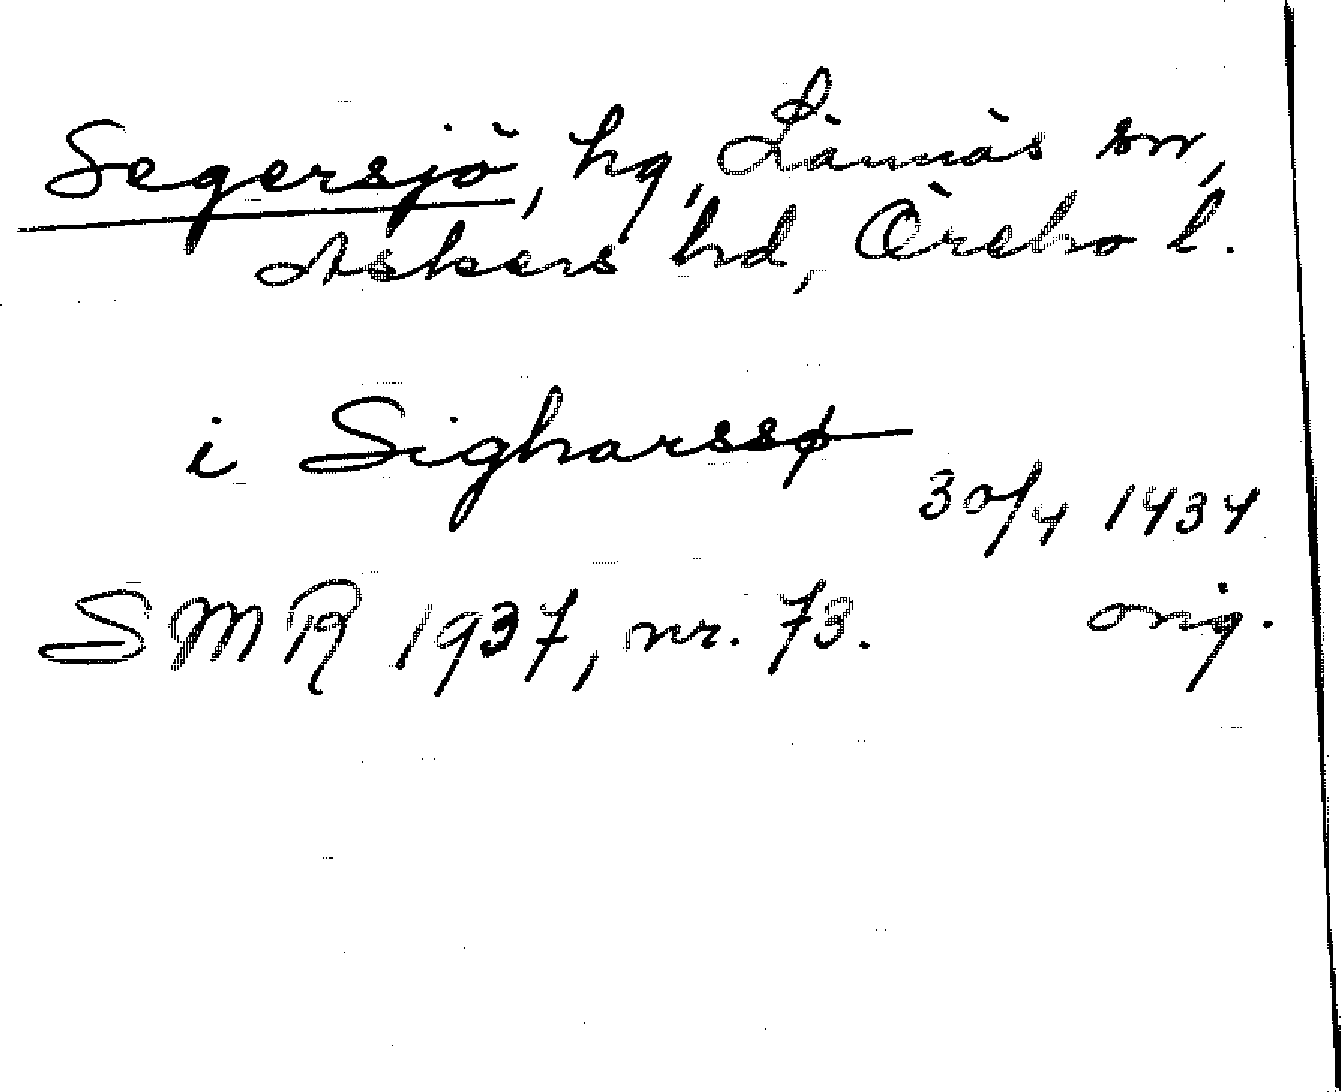 Segersjö, hg, Lännäs sn,
Askers hd, Örebro l.
i Sigharssø
30/4 1434
SMR 1937, nr. 73. orig.